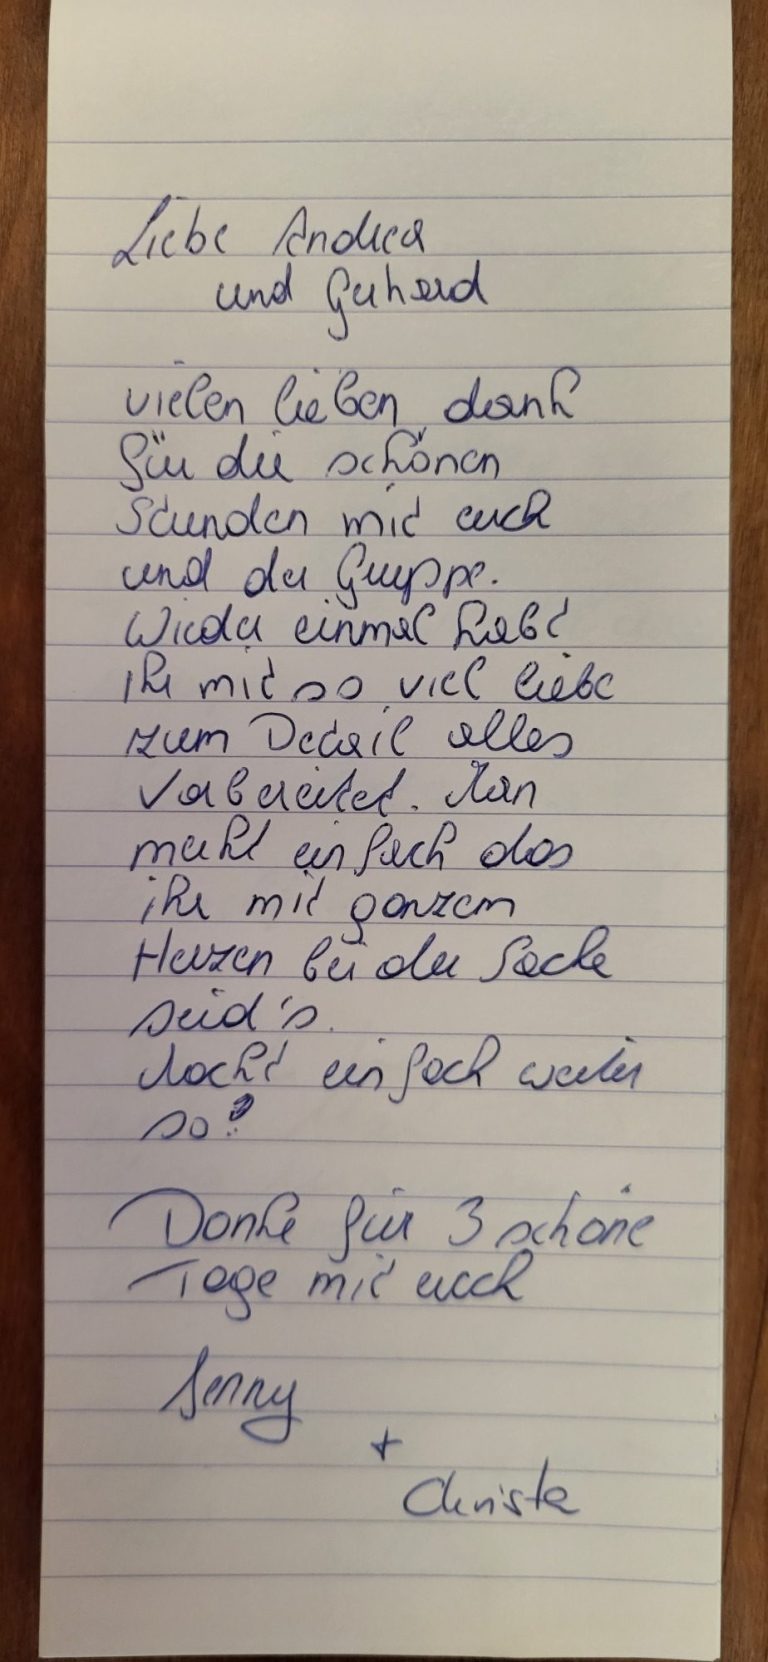 Liebe Andrea
und Gerhard
vielen lieben dank
für die schönen
Stunden mit euch
und der Gruppe.
Wieder einmal habt
ihr mit so viel liebe
zum Detail alles
vorbereitet. Man
merkt einfach das
ihr mit ganzem
Herzen bei der Sache
seid's.
Macht einfach weiter
so!
Danke für 3 schöne
Tage mit euch
Jenny
+
Christa